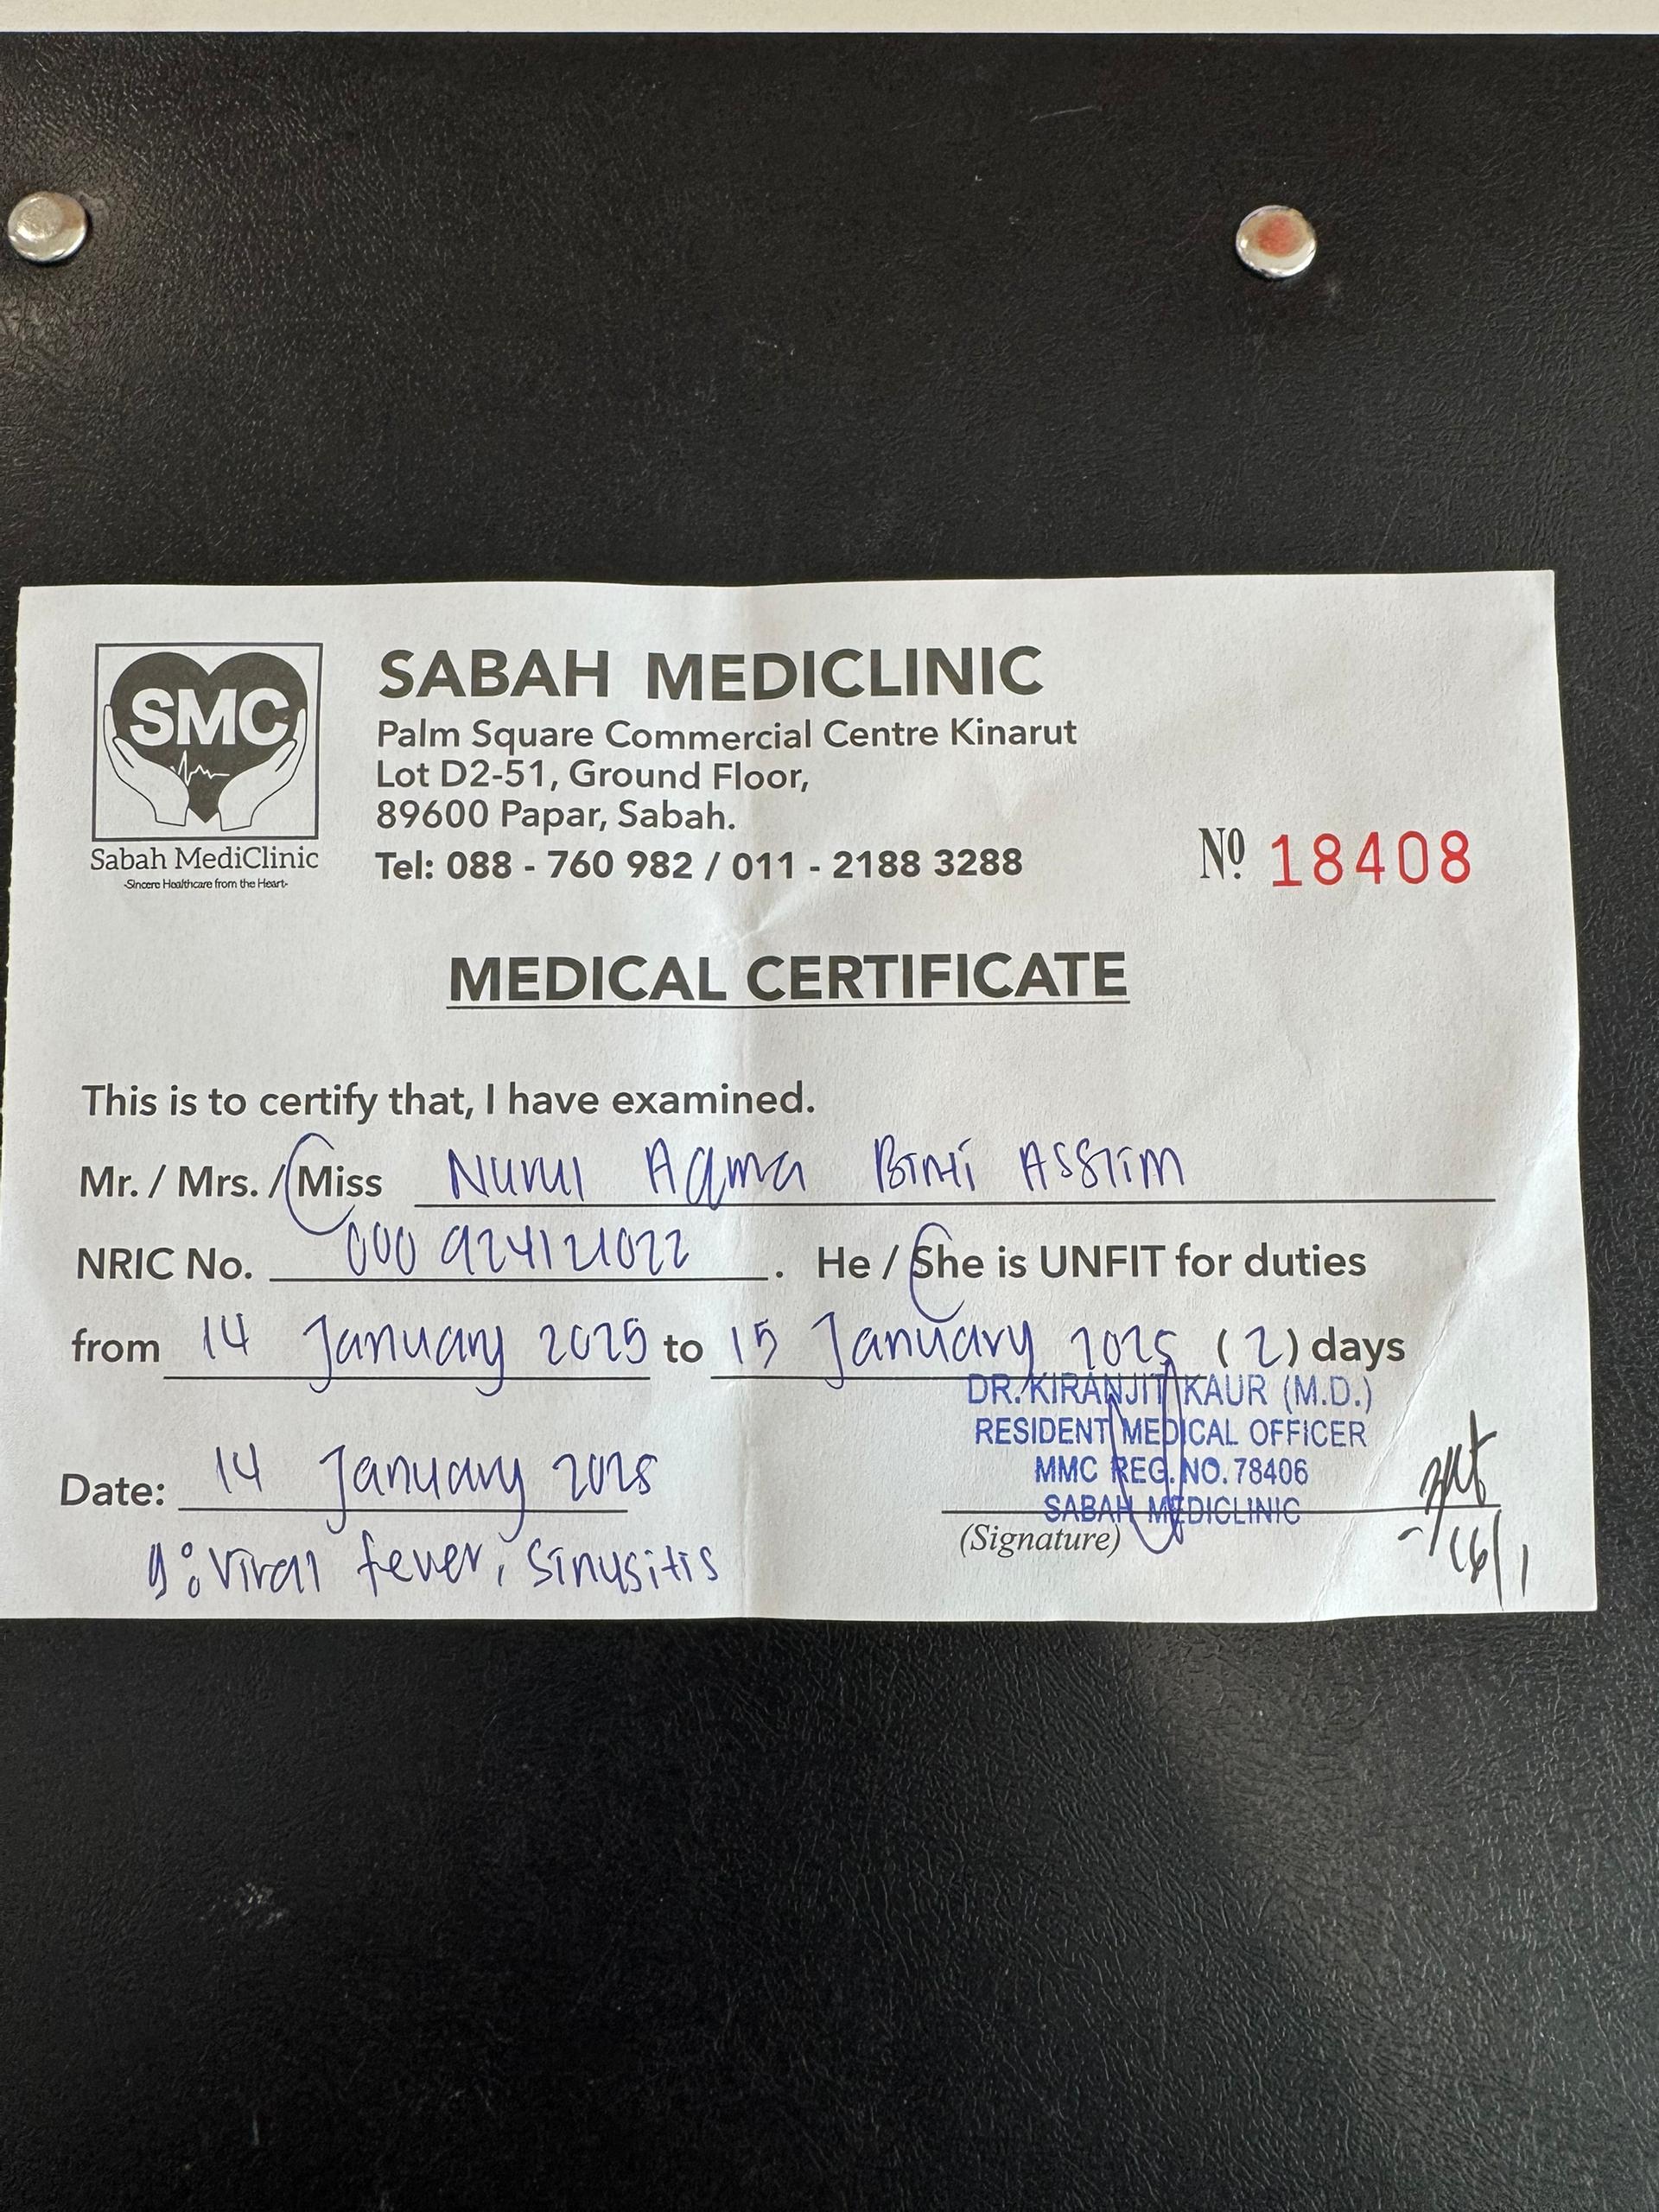 SMC
Sabah MediClinic
-Sincere Healthcare from the Heart-
SABAH MEDICLINIC
Palm Square Commercial Centre Kinarut
Lot D2-51, Ground Floor,
89600 Papar, Sabah.
Tel: 088 - 760 982 / 011 - 2188 3288
Nº 18408
MEDICAL CERTIFICATE
This is to certify that, I have examined.
Mr. / Mrs. / Miss Nurul Aqma Binti Asslim
NRIC No. 000924121022. He / She is UNFIT for duties
from 14 January 2025 to 15 January 2025 (2) days
DR. KIRANJIT KAUR (M.D.)
RESIDENT MEDICAL OFFICER
MMC REG. NO. 78406
SABAH MEDICLINIC
Date: 14 January 2025
(Signature)
16/1
: Viral fever, sinusitis